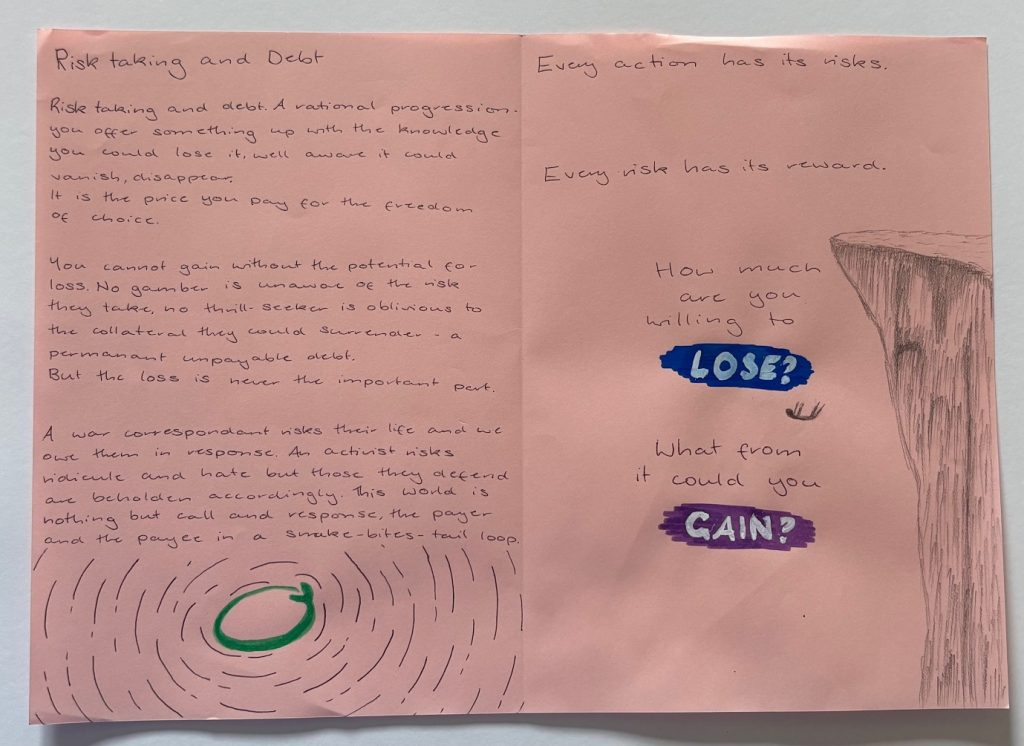 Risk taking and Debt
Risk taking and debt. A rational progression.
you offer something up with the knowledge
you could lose it, well aware it could
vanish, disappear.
It is the price you pay for the freedom
of choice.
You cannot gain without the potential for
loss. No gamber is unaware of the risk
they take, no thrill-seeker is oblivious to
the collateral they could surrender - a
permanant unpayable debt.
But the loss is never the important part.
A war correspondant risks their life and we
owe them in response. An activist risks
ridicule and hate but those they defend
are beholden accordingly. This world is
nothing but call and response, the payer
and the payee in a snake-bites-tail loop.
Every action has its risks.
Every risk has its reward.
How much
are you
willing to
LOSE?
What from
it could you
GAIN?